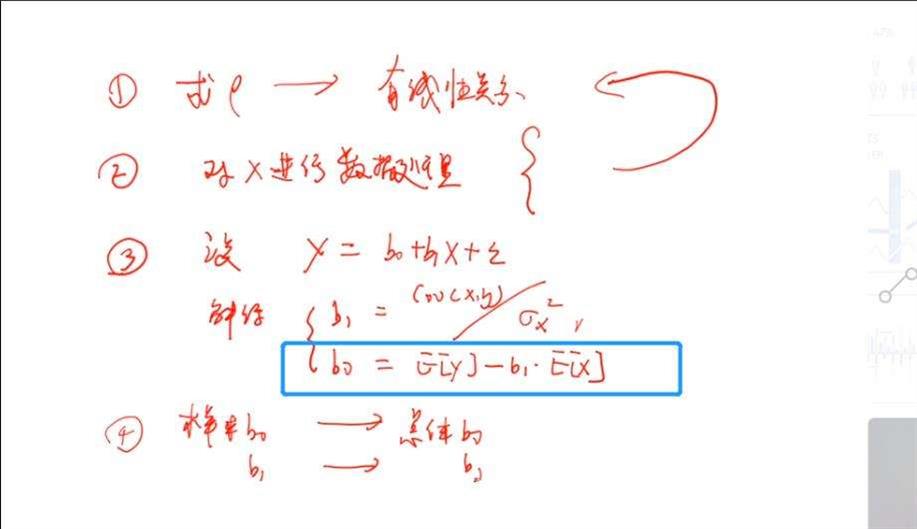 ① 求ρ → 有线性关系
② 对X进行数据处理 {
③ 设 y = b₀+b₁X+ε
解得 { b₁ = cov(x,y) / σₓ²
b₀ = E[y]-b₁·E[X]
④ 样本b₀ → 总体b₀
b₁ → b₁